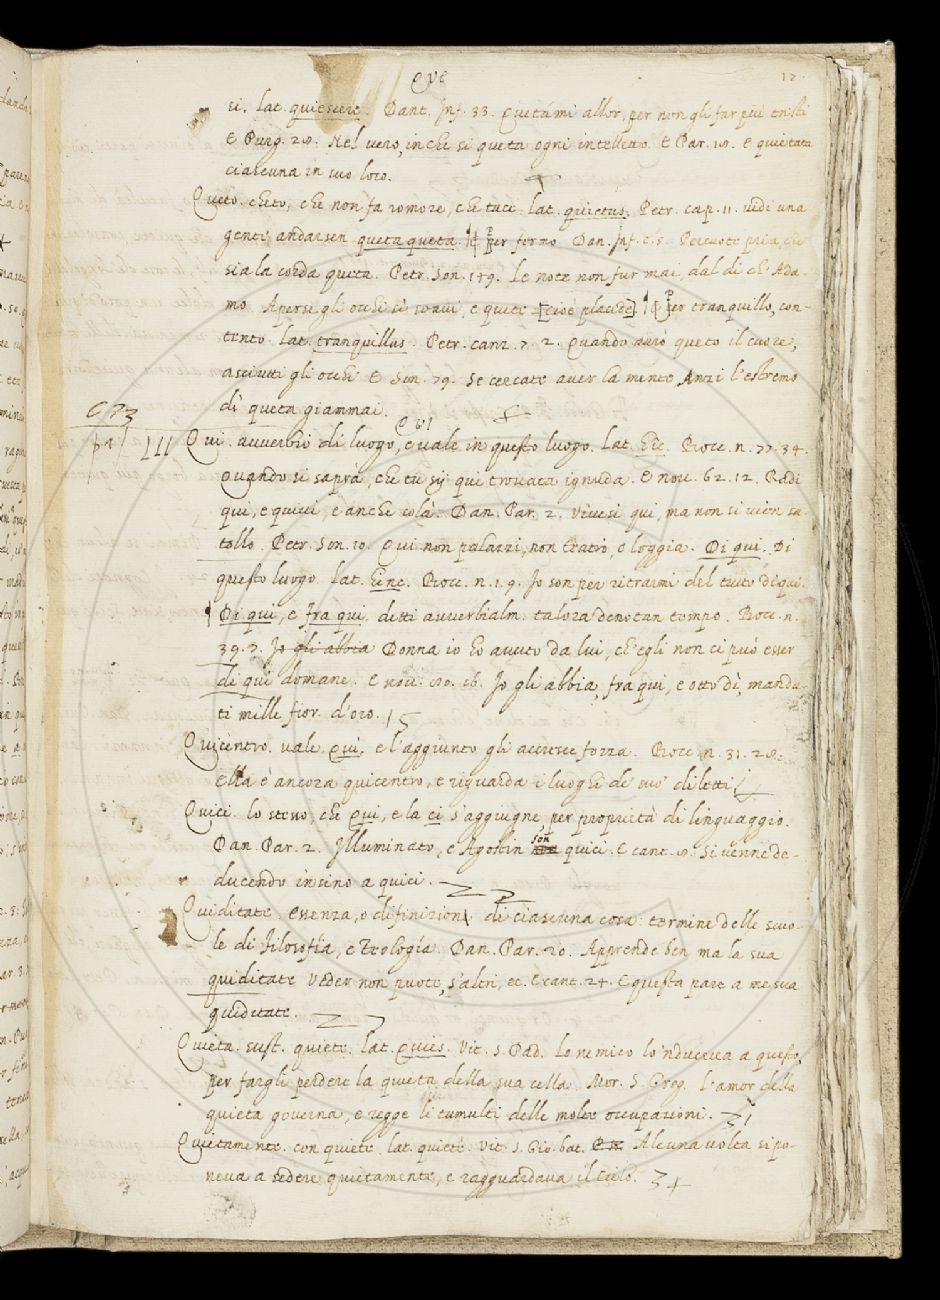 QVE
12.
si. lat. quiescere. Dant. Inf. 33. Quetámi allor, per non gli far più tristi
E Purg. 28. Nel vero, in che si queta ogni intelletto. E Par. 18. e quietata
ciascuna in suo loco.
Queto. cheto, che non fa romore, che tace. lat. quietus. Petr. cap. 11. vidi una
gente andarsen queta queta. ¶ Per fermo Dan. Inf. c. 8. Percuote pria, che
sia la corda queta. Petr. Son. 149. Le notte non fur mai dal dì ch' Ada-
mo Aperse gli occhi sì soavi, e quete [cioè placide]. ¶ Per tranquillo, con-
tento. lat. tranquillus. Petr. canz. 7. 2. Quando avrò queto il cuore,
asciutti gli occhi E Son. 79. Se cercate aver la mente Anzi l'estremo
dì queta giammai.
C 73
pa III
QVI
Qui. avverbio di luogo, e vale in questo luogo. Lat. Hic. Bocc. n. 77. 34.
Quando si saprà, che tu sij qui trovata ignuda. E nov. 62. 12. Radi
qui, e quivi, e anche colà. Dan. Par. 2. Vivesi qui, ma non si vien sa-
tollo. Petr. Son. 10. Qui non palazzi, non teatro, o loggia. Di qui. Di
questo luogo. lat. hinc. Bocc. n. 1. 9. Io son per ritrarmi del tutto di qui.
¶ Di qui, e Fra qui, detti avverbialm. talora denotan tempo. Bocc. n.
39. 7. Io gli abbia Donna io ho avuto da lui, ch'egli non ci può esser
di quì domane. E nov. 80. 16. Io gli abbia, fra qui, e otto dì, manda-
ti mille fior. d'oro.
Quicentro. vale Qui, e l'aggiunto gli accresce forza. Bocc. n. 31. 28.
ella è ancora quicentro, e riguarda i luoghi de' suo' diletti
Quici. lo stesso, che Qui, e la ci s'aggiugne, per propietà di linguaggio.
Dan. Par. 2. Illuminato, e Agostin son quici. E cant. 8. Si venne de-
ducendo insino a quici.
Quiditate. essenza, o difinizion di ciascuna cosa: termine delle scuo-
le di filosofia, e teologia. Dan. Par. 20. Apprende ben ma la sua
quiditate Veder non puote, s'altri, ec. E cant. 24. E questa pare a me sua
quiditate.
Quieta. sust. quiete. lat. Quies. Vit. S. Pad. Lo nemico lo 'nduceva a questo,
per fargli perdere la quieta della sua cella. Mor. S. Greg. l'amor della
quieta governa, e regge li tumulti delle molte occupazioni.
Quietamente. con quiete. lat. quietè. Vit. S. Gio. bat. Alcuna volta si po-
neva a sedere quietamente, e ragguardava il Cielo.